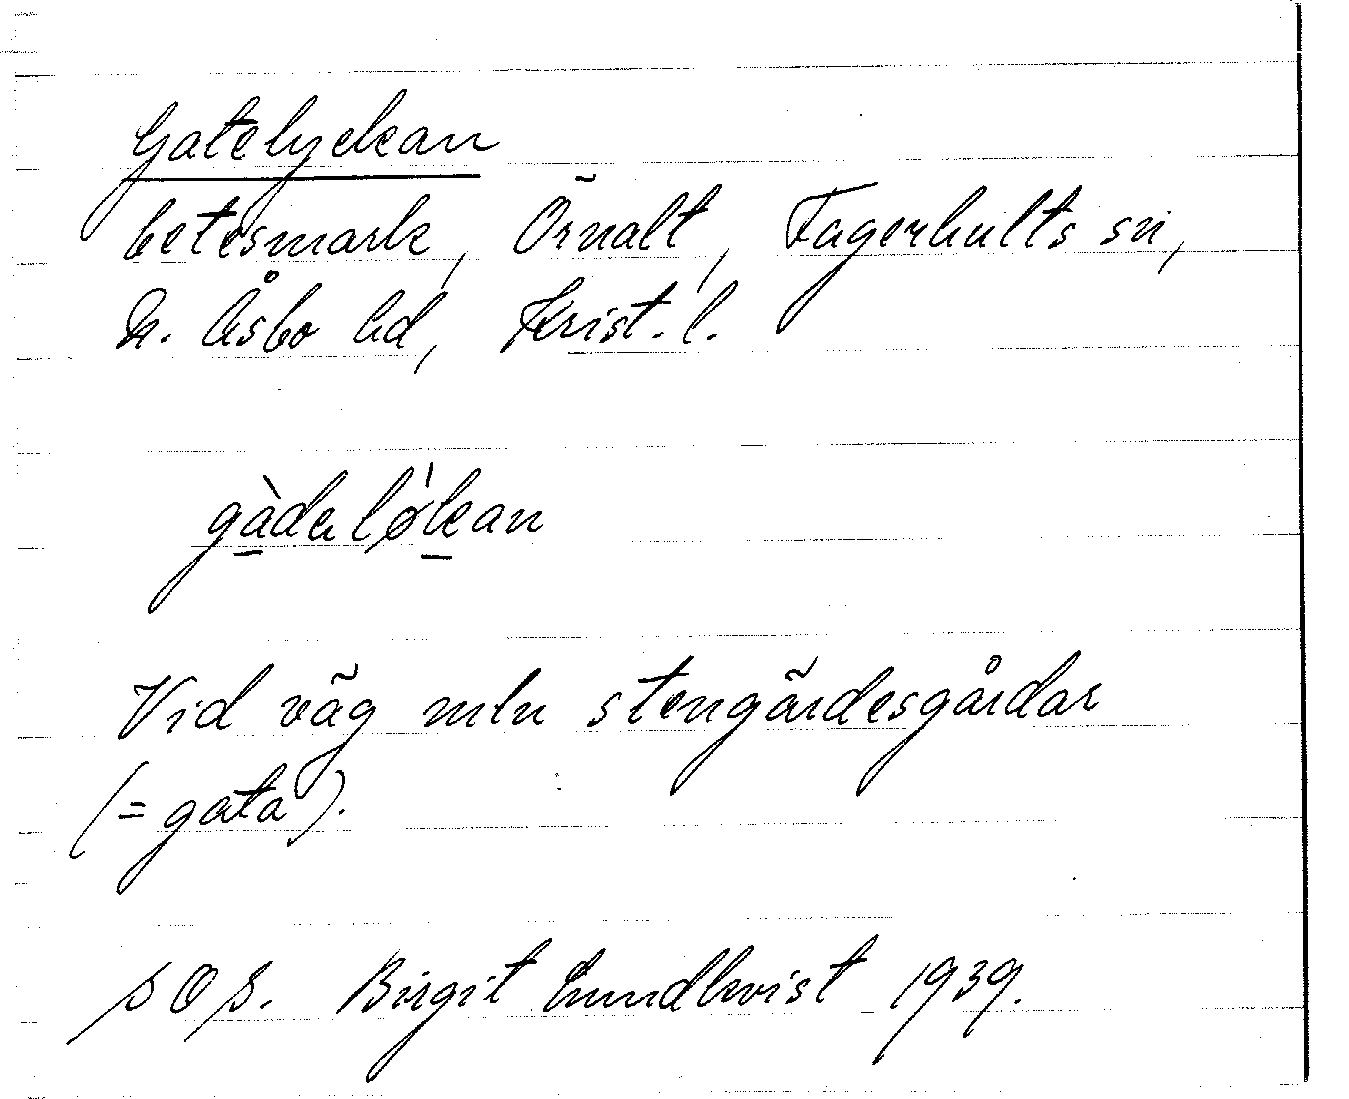 Gatelyckan
betesmark, Örnalt, Fagerhults sn,
N. Åsbo hd, Krist. l.
gàdalǿkan
Vid väg mln stengärdesgårdar
(= gata).
SOS. Birgit Lundkvist 1939.